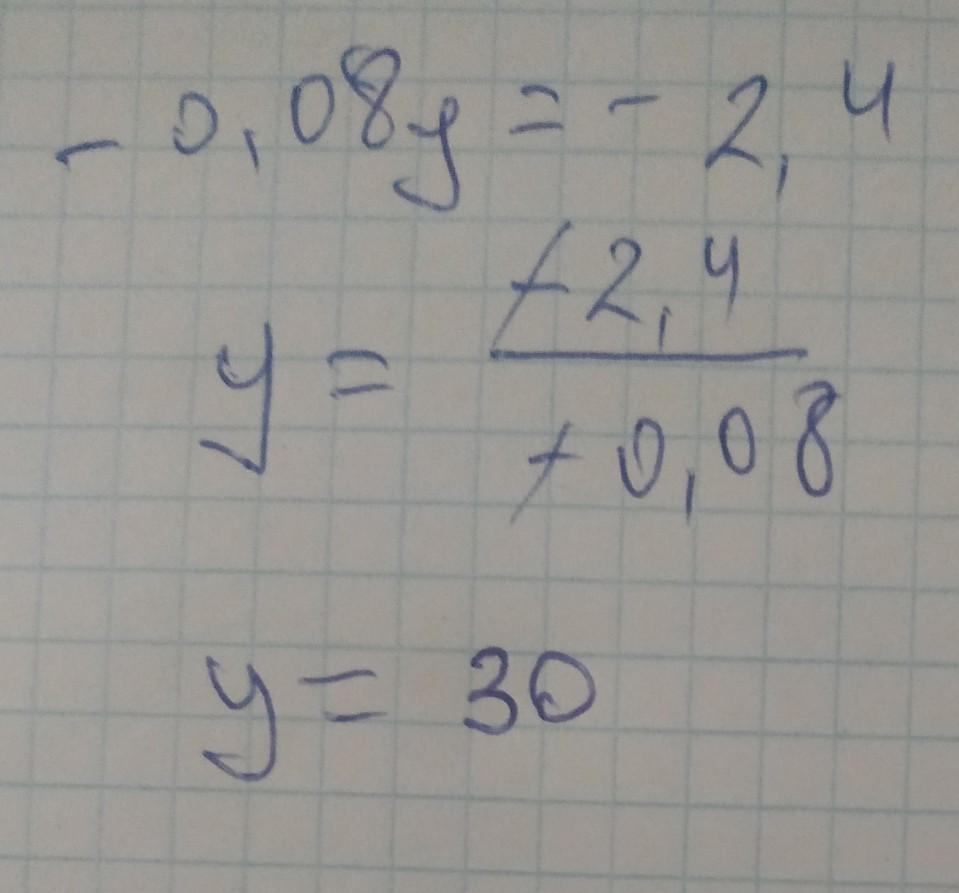 - 0,08y = - 2,4
y = -2,4 / -0,08
y = 30